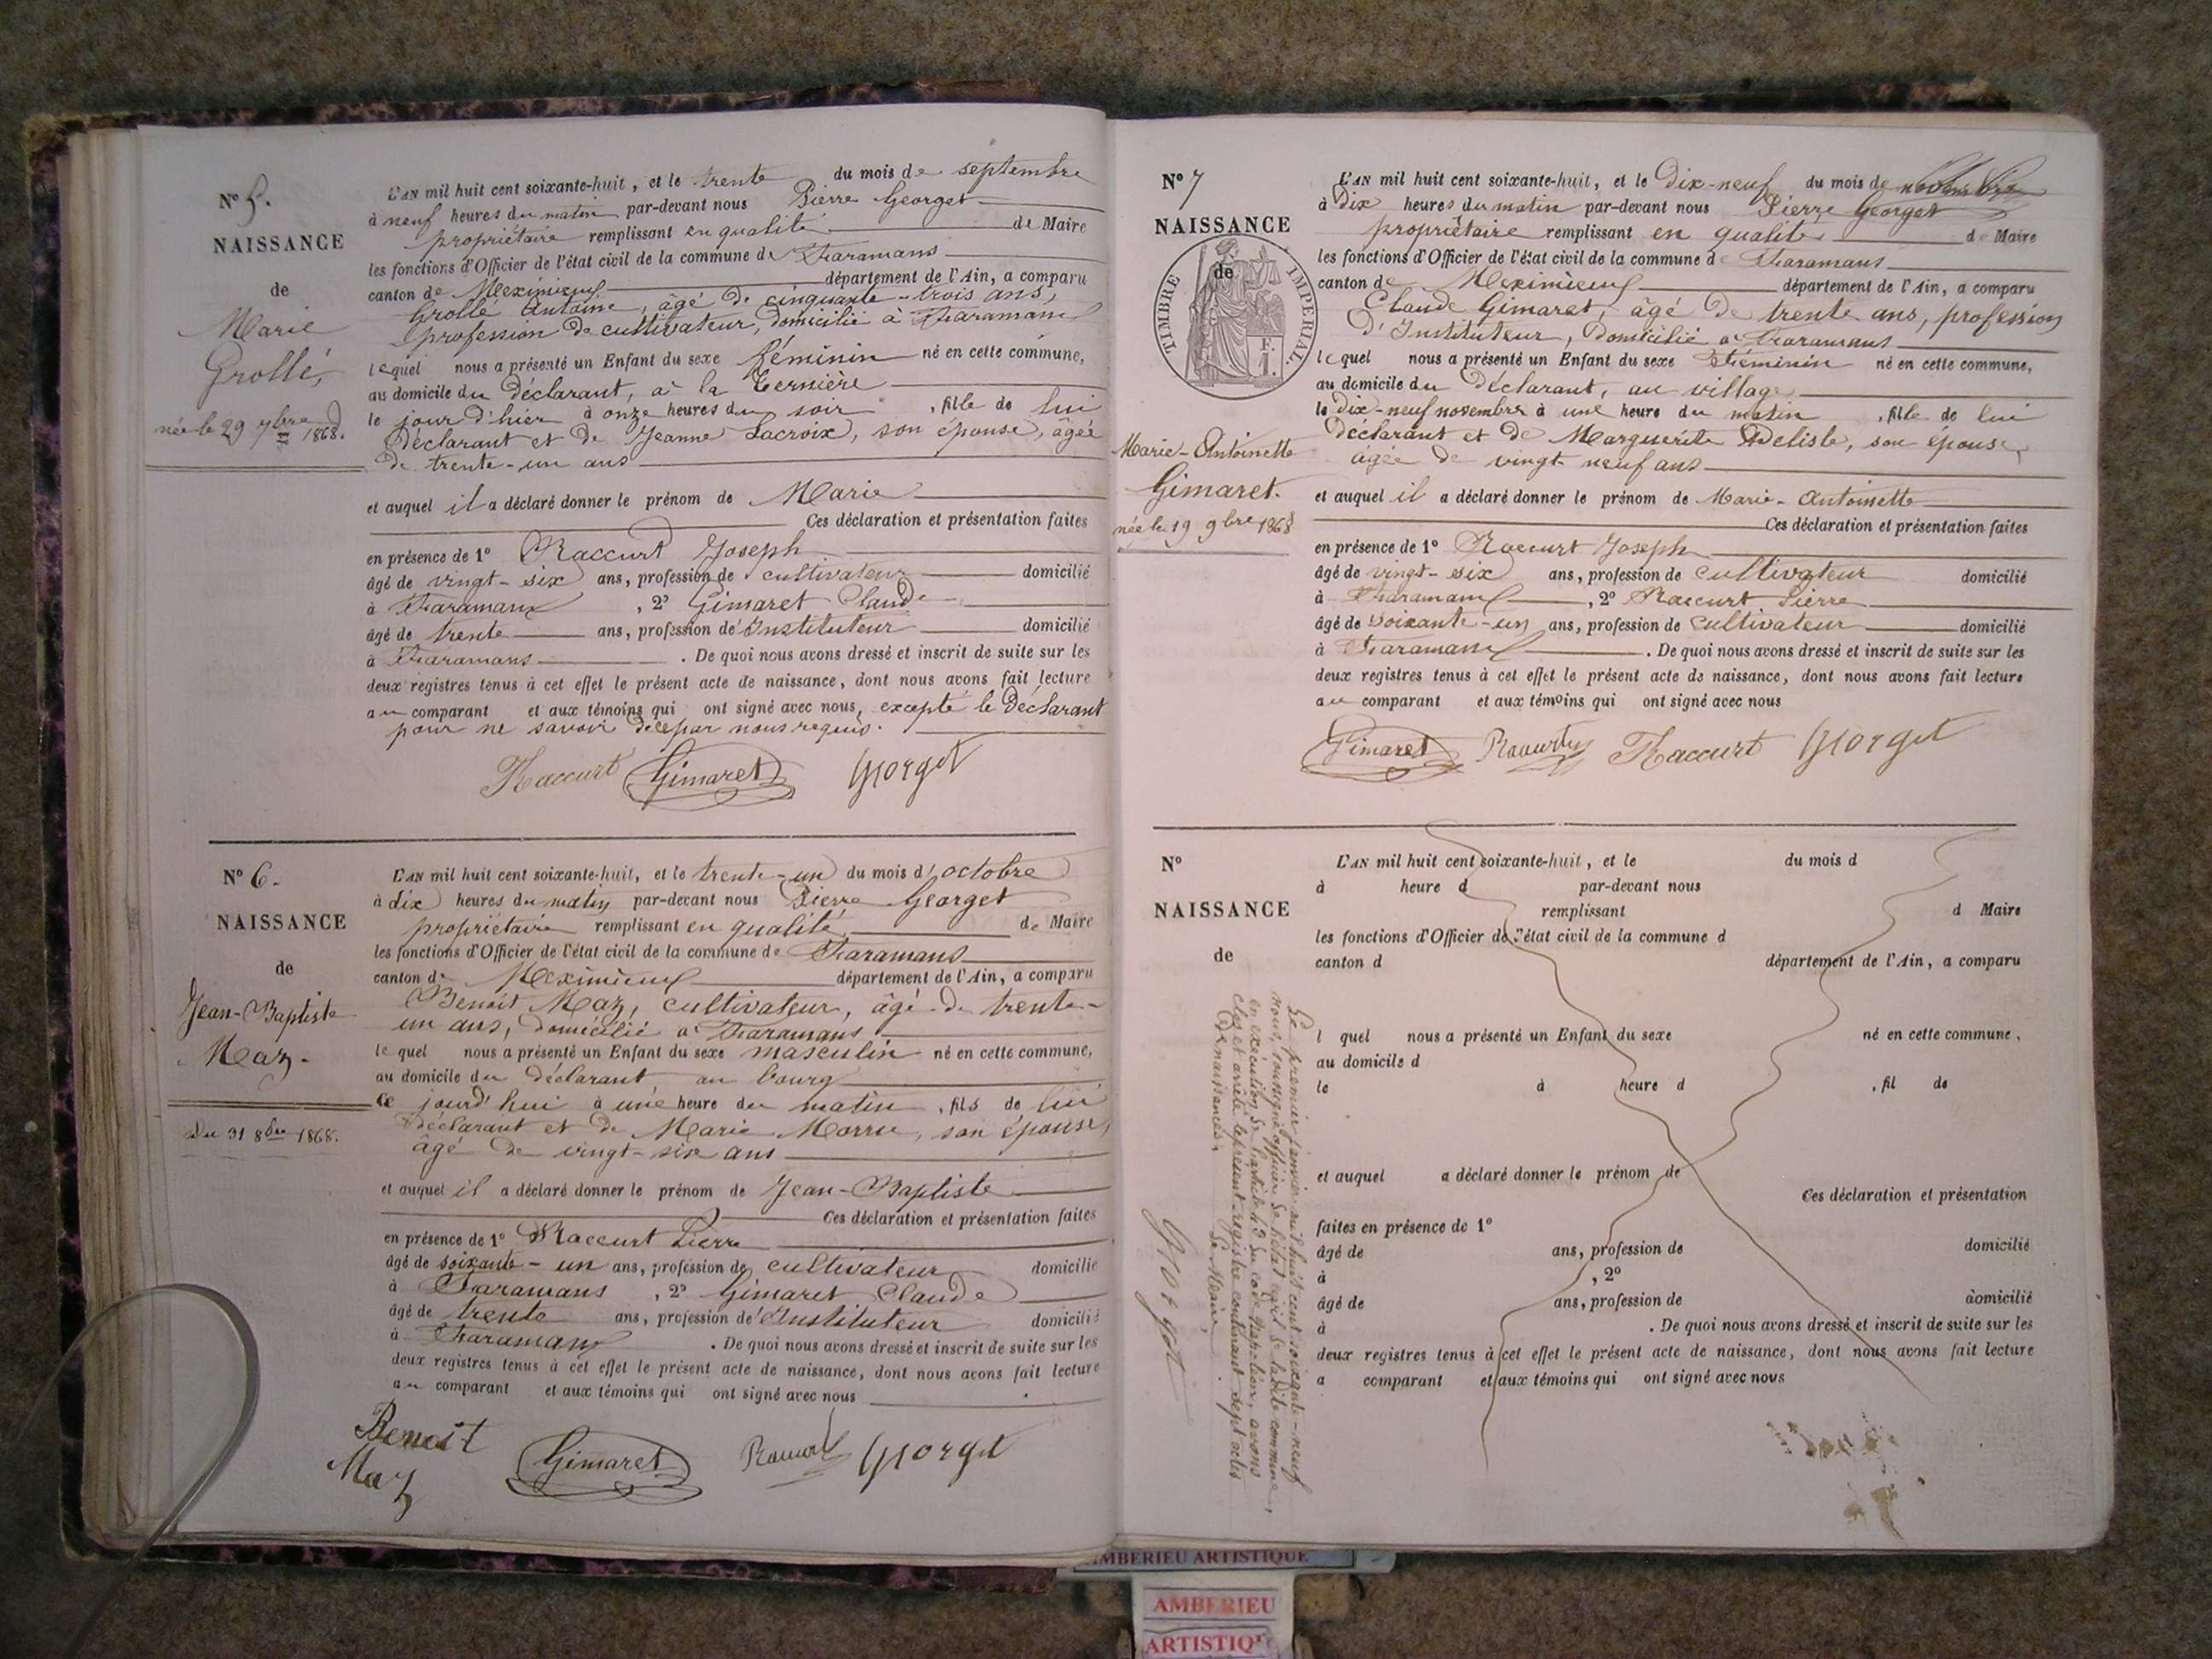 Nº 5.
NAISSANCE
de
Marie
Grollé,
née le 29 7bre 1868.
L'AN mil huit cent soixante-huit, et le trente du mois de septembre
à neuf heures du matin par-devant nous Pierre Georget
propriétaire remplissant en qualité de Maire
les fonctions d'Officier de l'état civil de la commune de Faramans
canton de Meximieux département de l'Ain, a comparu
Grollé Antoine, âgé de cinquante-trois ans,
profession de cultivateur, domicilié à Faramans
lequel nous a présenté un Enfant du sexe féminin né en cette commune,
au domicile du déclarant, à la Bernière
le jour d'hier à onze heures du soir, fille de lui
déclarant et de Jeanne Lacroix, son épouse, âgée
de trente-un ans
et auquel il a déclaré donner le prénom de Marie
Ces déclaration et présentation faites
en présence de 1º Raccurt Joseph
âgé de vingt-six ans, profession de cultivateur domicilié
à Faramans, 2º Gimaret Claude
âgé de trente ans, profession de Instituteur domicilié
à Faramans. De quoi nous avons dressé et inscrit de suite sur les
deux registres tenus à cet effet le présent acte de naissance, dont nous avons fait lecture
au comparant et aux témoins qui ont signé avec nous, excepté le déclarant
pour ne savoir de ce par nous requis.
Raccurt Gimaret Gjorget
Nº 6.
NAISSANCE
de
Jean-Baptiste
Maz.
Du 31 8bre 1868.
L'AN mil huit cent soixante-huit, et le trente-un du mois d'octobre
à dix heures du matin par-devant nous Pierre Georget
propriétaire remplissant en qualité de Maire
les fonctions d'Officier de l'état civil de la commune de Faramans
canton de Meximieux département de l'Ain, a comparu
Benoit Maz, cultivateur, âgé de trente-
un ans, domicilié à Faramans
lequel nous a présenté un Enfant du sexe masculin né en cette commune,
au domicile du déclarant, au bourg
ce jourd'hui à une heure du matin, fils de lui
déclarant et de Marie Morru, son épouse,
âgé de vingt-six ans
et auquel il a déclaré donner le prénom de Jean-Baptiste
Ces déclaration et présentation faites
en présence de 1º Raccurt Pierre
âgé de soixante-un ans, profession de cultivateur domicilié
à Faramans, 2º Gimaret Claude
âgé de trente ans, profession de Instituteur domicilié
à Faramans. De quoi nous avons dressé et inscrit de suite sur les
deux registres tenus à cet effet le présent acte de naissance, dont nous avons fait lecture
au comparant et aux témoins qui ont signé avec nous
Benoit
Maz Gimaret Raccurt Gjorget
Nº 7
NAISSANCE
de
TIMBRE IMPERIAL.
1 F.
Marie-Antoinette
Gimaret.
née le 19 9bre 1868
L'AN mil huit cent soixante-huit, et le dix-neuf du mois de novembre
à dix heures du matin par-devant nous Pierre Georget
propriétaire remplissant en qualité de Maire
les fonctions d'Officier de l'état civil de la commune de Faramans
canton de Meximieux département de l'Ain, a comparu
Claude Gimaret, âgé de trente ans, profession
d'Instituteur, domicilié à Faramans
lequel nous a présenté un Enfant du sexe féminin né en cette commune,
au domicile du déclarant, au village
le dix-neuf novembre à une heure du matin, fille de lui
déclarant et de Marguerite Delisle, son épouse,
âgée de vingt neuf ans
et auquel il a déclaré donner le prénom de Marie-Antoinette
Ces déclaration et présentation faites
en présence de 1º Raccurt Joseph
âgé de vingt-six ans, profession de cultivateur domicilié
à Faramans, 2º Raccurt Pierre
âgé de soixante-un ans, profession de cultivateur domicilié
à Faramans. De quoi nous avons dressé et inscrit de suite sur les
deux registres tenus à cet effet le présent acte de naissance, dont nous avons fait lecture
au comparant et aux témoins qui ont signé avec nous
Gimaret Raccurt Raccurt Gjorget
Nº
NAISSANCE
de
L'AN mil huit cent soixante-huit, et le du mois d
à heure d par-devant nous
remplissant d Maire
les fonctions d'Officier de l'état civil de la commune d
canton d département de l'Ain, a comparu
l quel nous a présenté un Enfant du sexe né en cette commune,
au domicile d
le à heure d, fil de
et auquel a déclaré donner le prénom de
Ces déclaration et présentation
faites en présence de 1º
âgé de ans, profession de domicilié
à, 2º
âgé de ans, profession de domicilié
à. De quoi nous avons dressé et inscrit de suite sur les
deux registres tenus à cet effet le présent acte de naissance, dont nous avons fait lecture
a comparant et aux témoins qui ont signé avec nous
Le premier janvier mil huit cent soixante-neuf
nous, soussigné officier de l'état civil de ladite commune,
en exécution de l'article 43 du code Napoléon, avons
clos et arrêté le présent registre contenant sept actes
de naissances.
Le Maire,
Gjorget
AMBERIEU ARTISTIQUE
AMBERIEU
ARTISTIQU